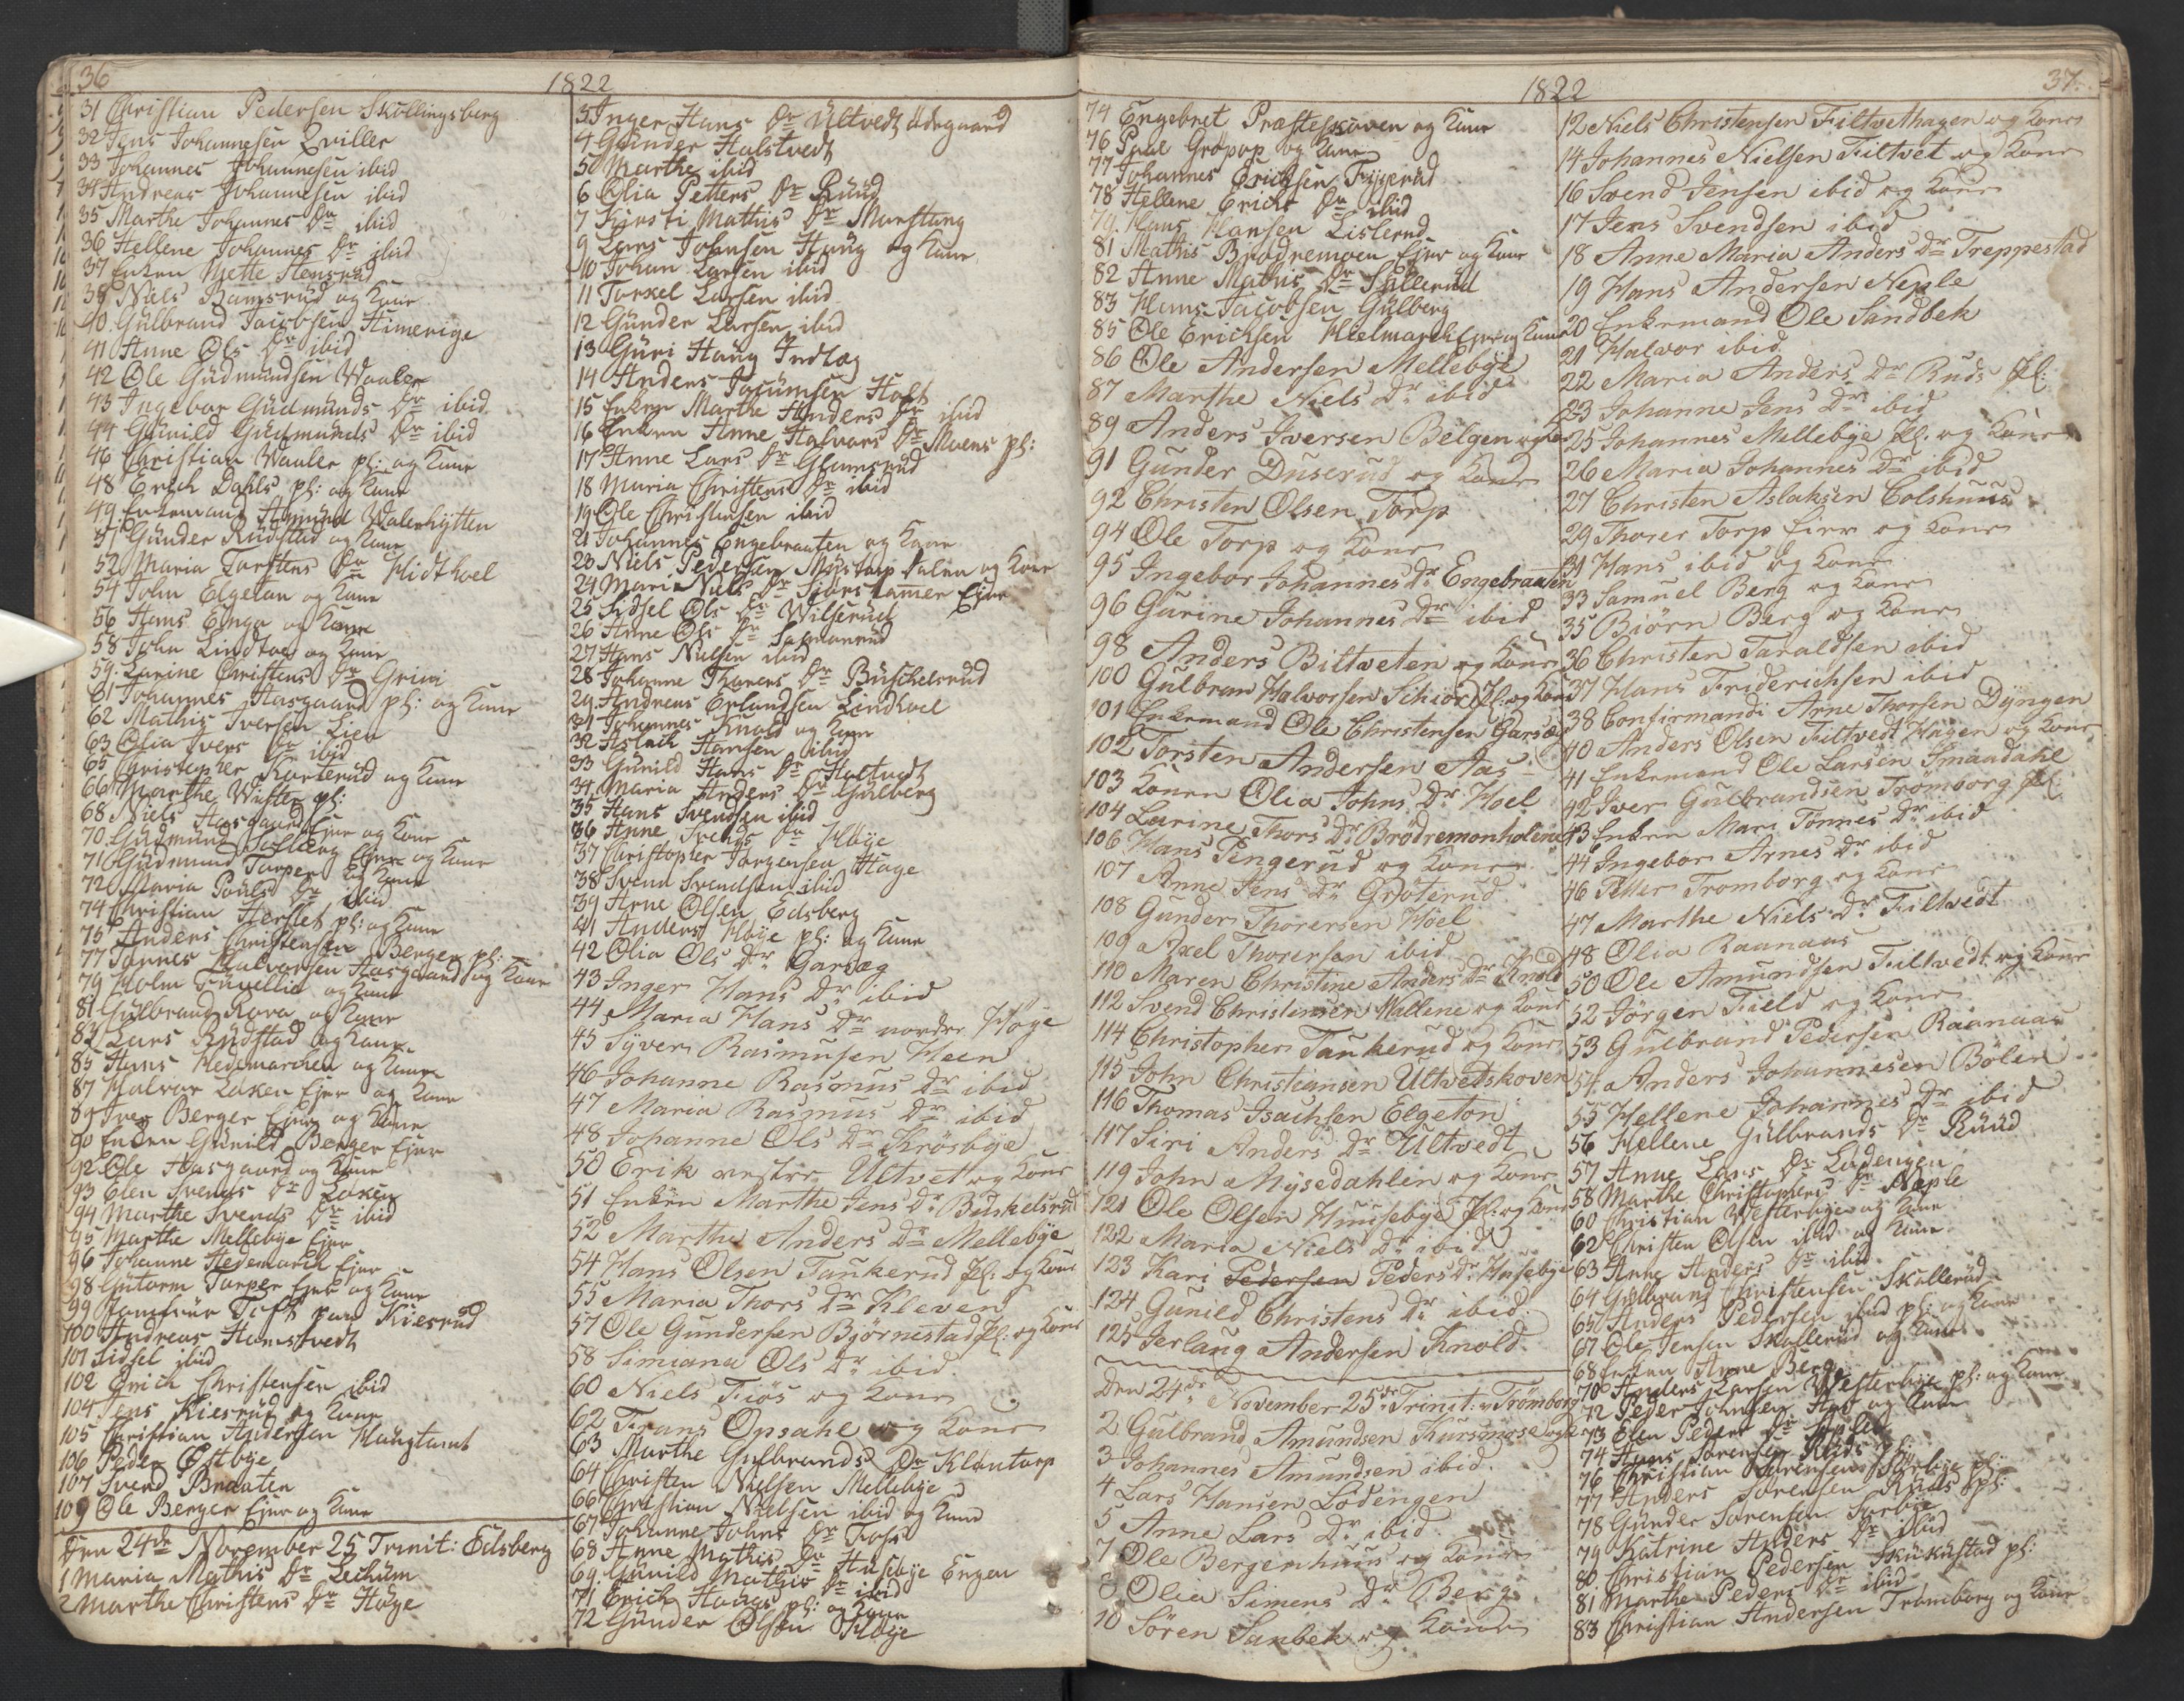 36
1822
31 Christian Pedersen Skullingsberg
32 Jens Johannesen Qviller
33 Johannes Johannesen ibid
34 Andreas Johannesen ibid
35 Marthe Johannes Dr ibid
36 Hellene Johannes Dr ibid
37 Enken Mette Hensrud
39 Niels Ramsrud og Kone
40 Gulbrand Jacobsen Himerige
41 Anne Ols Dr ibid
42 Ole Gudmundsen Waaler
43 Ingebor Gudmunds Dr ibid
44 Gunild Gudmunds Dr ibid
46 Christian Waaler pl: og Kone
48 Erich Dahls pl: og Kone
49 Enkemand Amund Walerhytten
51 Gunder Rudstad og Kone
52 Maria Torstens Dr Hidthoel
54 John Elgetun og Kone
56 Hans Enga og Kone
58 John Lindtoe og Kone
59 Karine Christens Dr Grini
61 Johannes Aasgaard pl: og Kone
62 Mathis Iversen Lien
63 Olia Ivers Dr ibid
65 Christopher Korterud og Kone
66 Marthe Wister pl:
68 Niels Aasgaard Ejer og Kone
70 Gudmund Solberg Ejer og Kone
71 Gudmund Torper og Kone
72 Maria Pouls Dr ibid
74 Christian Herslet pl: og Kone
75 Anders Christensen Berger pl:
77 Tønnes Halvorsen Aasgaard og Kone
79 Holm Fuvellie og Kone
81 Gulbrand Kova og Kone
83 Lars Rudstad og Kone
85 Hans Hedemarchen og Kone
87 Halvor Laken Ejer og Kone
89 Iver Berger Ejer og Kone
90 Enken Gunild Berger Ejer
92 Ole Aasgaard og Kone
93 Elen Svends Dr Laken
94 Marthe Svends Dr ibid
95 Marthe Mellebye Ejer
96 Johanne Hedemarch Ejer
98 Gutorm Torper Ejer og Kone
99 Jomfrue Toft paa Kiesrud
100 Andreas Hamstvedt
101 Sidsel ibid
102 Erich Christensen ibid
104 Jens Kiesrud og Kone
105 Christian Andersen Haugtomt
106 Peder Østbye
107 Svend Braaten
109 Ole Berger Ejer og Kone
Den 24de November 25 Trinit: Edsberg
1 Maria Mathis Dr Lechum
2 Marthe Christens Dr Høye
3 Inger Hans Dr Ultvedt ødegaard
4 Gunder Halstvedt
5 Marthe ibid
6 Olia Petters Dr Ruud
7 Kirsti Mathis Dr Morstang
9 Lars Johnsen Haug og Kone
10 Johan Larsen ibid
11 Torkel Larsen ibid
12 Gunder Larsen ibid
13 Guri Haug Indlæg
14 Anders Joeumsen Hoft
15 Enken Marthe Anders Dr ibid
16 Enken Anne Halvors Dr Moens pl:
17 Anne Lars Dr Glamsrud
18 Maria Christens Dr ibid
19 Ole Christensen ibid
21 Johannes Engebraaten og Kone
23 Niels Pedersen Mustorp dalen og Kone
24 Mari Niels Dr Ejer
25 Sidsel Ols Dr Wilserud
26 Anne Ols Dr Salmonrud
27 Hans Nielsen ibid
28 Johanne Thorers Dr Buschelsrud
29 Andreas Erlandsen Lindhoel
31 Johannes Knold og Kone
32 Aslach Hansen ibid
33 Gunild Hans Dr Haltvedt
34 Maria Anders Dr Gulberg
35 Hans Svendsen ibid
36 Anne Svends Dr Høije
37 Christopher Jørgensen Hage
38 Svenn Svendsen ibid
39 Arne Olsen Edsberg
41 Anders Høije pl: og Kone
42 Olia Ols Dr Garsæg
43 Inger Hans Dr ibid
44 Maria Hans Dr nordre Høye
45 Syver Rasmusen Heen
46 Johanne Rasmus Dr ibid
47 Maria Rasmus Dr ibid
48 Johanne Ols Dr Krosbye
50 Erik vestre Ultvet og Kone
51 Enken Marthe Jens Dr Buskelsrud
52 Marthe Anders Dr Mellebye
54 Hans Olsen Tankerud Pl: og Kone
55 Maria Thors Dr Kleven
57 Ole Gundersen Bjørnestad Pl: og Kone
58 Simiana Ols Dr ibid
60 Niels Fiøs og Kone
62 Frans Opsahl og Kone
63 Marthe Gulbrands Dr Klontorp
64 Christen Nielsen Mellebye
66 Christian Nielsen ibid og Kone
67 Johanne Johns Dr Foss
68 Anne Mathis Dr Husebye Engen
69 Gunild Mathis Dr ibid
71 Erich Haugs pl: og Kone
72 Gunder Olsen Høije
37
1822
74 Engebret Præsteskoven og Kone
76 Paul Gropop og Kone
77 Johannes Erichsen Fyggerud
78 Hellene Erichs Dr ibid
79 Hans Hansen Lislerud
81 Mathis Brødremoen Ejer og Kone
82 Anne Mathis Dr Skllerud
83 Hans Jacobsen Gulberg
85 Ole Erichsen Hielmarck Ejer og Kone
86 Ole Andersen Mellebye
87 Marthe Niels Dr ibid
89 Anders Iversen Belgen og Kone
91 Gunder Duserud og Kone
92 Christen Olsen Torp
94 Ole Torp og Kone
95 Ingebor Johannes Dr Engebraaten
96 Gurine Johannes Dr ibid
98 Anders Biltveten og Kone
100 Gulbran Halvorsen Schiør Pl: og Kone
101 Enkemand Ole Christensen Garsæg
102 Torsten Andersen Aas
103 Konen Olia Johns Dr Hoel
104 Larine Thors Dr Brødremonholene
106 Hans Pengerud og Kone
107 Anne Jens Dr Grøterud
108 Gunder Thorersen Hoel
109 Axel Thorersen ibid
110 Maren Christine Anders Dr Knold
112 Svend Christensen Hallene og Kone
114 Christopher Tankerud og Kone
115 John Christiansen Ultvetskoven
116 Thomas Isachsen Elgeton
117 Siri Anders Dr Ultvedt
119 John Mysedahlen og Kone
121 Ole Olsen Huusebye Pl: og Kone
122 Maria Niels Dr ibid
123 Kari Pedersen Peders Dr Husebye
124 Gunild Christens Dr ibid
125 Jerlaug Andersen Knold
Den 24de November 25de Trinit: Trømborg
2 Gulbrand Amundsen Kursmose og Kone
3 Johannes Amundsen ibid
4 Lars Hansen Lodengen
5 Anne Lars Dr ibid
7 Ole Bergenhuus og Kone
8 Olia Simens Dr Berg
10 Søren Sanbek og Kone
12 Niels Christensen Filtvethagen og Kone
14 Johannes Nielsen Filtvet og Kone
16 Svend Jensen ibid og Kone
17 Jens Svendsen ibid
18 Anne Maria Anders Dr Treppestad
19 Hans Andersen Neple
20 Enkemand Ole Sandbek
21 Halvor ibid
22 Maria Anders Dr Ruds Pl:
23 Johanne Jens Dr ibid
25 Johannes Mellebye Pl. og Kone
26 Maria Johannes Dr ibid
27 Christen Aslaksen Colshuus
29 Thorer Torp Eier og Kone
31 Hans ibid og Kone
33 Samuel Berg og Kone
35 Biørn Berg og Kone
36 Christen Taraldsen ibid
37 Hans Friderichsen ibid
38 Confirmandi Arne Thorsen Dyngen
40 Anders Olsen Filtvedt Hagen og Kone
41 Enkemand Ole Larsen Smaadahl
42 Iver Gulbrandsen Trømborg Pl:
43 Enken Mari Tønnes Dr ibid
44 Ingebor Arnes Dr ibid
46 Petter Tromborg og Kone
47 Marthe Niels Dr Filtvedt
48 Olia Raanaas
50 Ole Amundsen Filtvedt og Kone
52 Jørgen Field og Kone
53 Gulbrand Pedersen Raanaas
54 Anders Johannesen Bølen
55 Hellene Johannes Dr ibid
56 Hellene Gulbrands Dr Ruud
57 Anne Lars Dr Lodengen
58 Marthe Christophers Dr Neple
60 Christian Westerbye og Kone
62 Christen Olsen ibid og Kone
63 Anne Anders Dr ibid
64 Gulbrand Christensen Skollerud
65 Anders Pedersen ibid pl: og Kone
67 Ole Jensen Skollerud og Kone
68 Enken Anne Berg
70 Anders Larsen Westerbye pl: og Kone
72 Peder Johnsen og Kone
73 Elen Peders Dr
74 Hans Sørensen Ruds pl:
76 Christian Sørensen pl:
77 Anders Sørensen Ruds pl:
78 Gunder Sørensen Sorbye
79 Katrine Anders Dr ibid
80 Christian Pedersen Skukustad pl:
81 Marthe Peders Dr ibid
83 Christian Andersen Trømborg og Kone